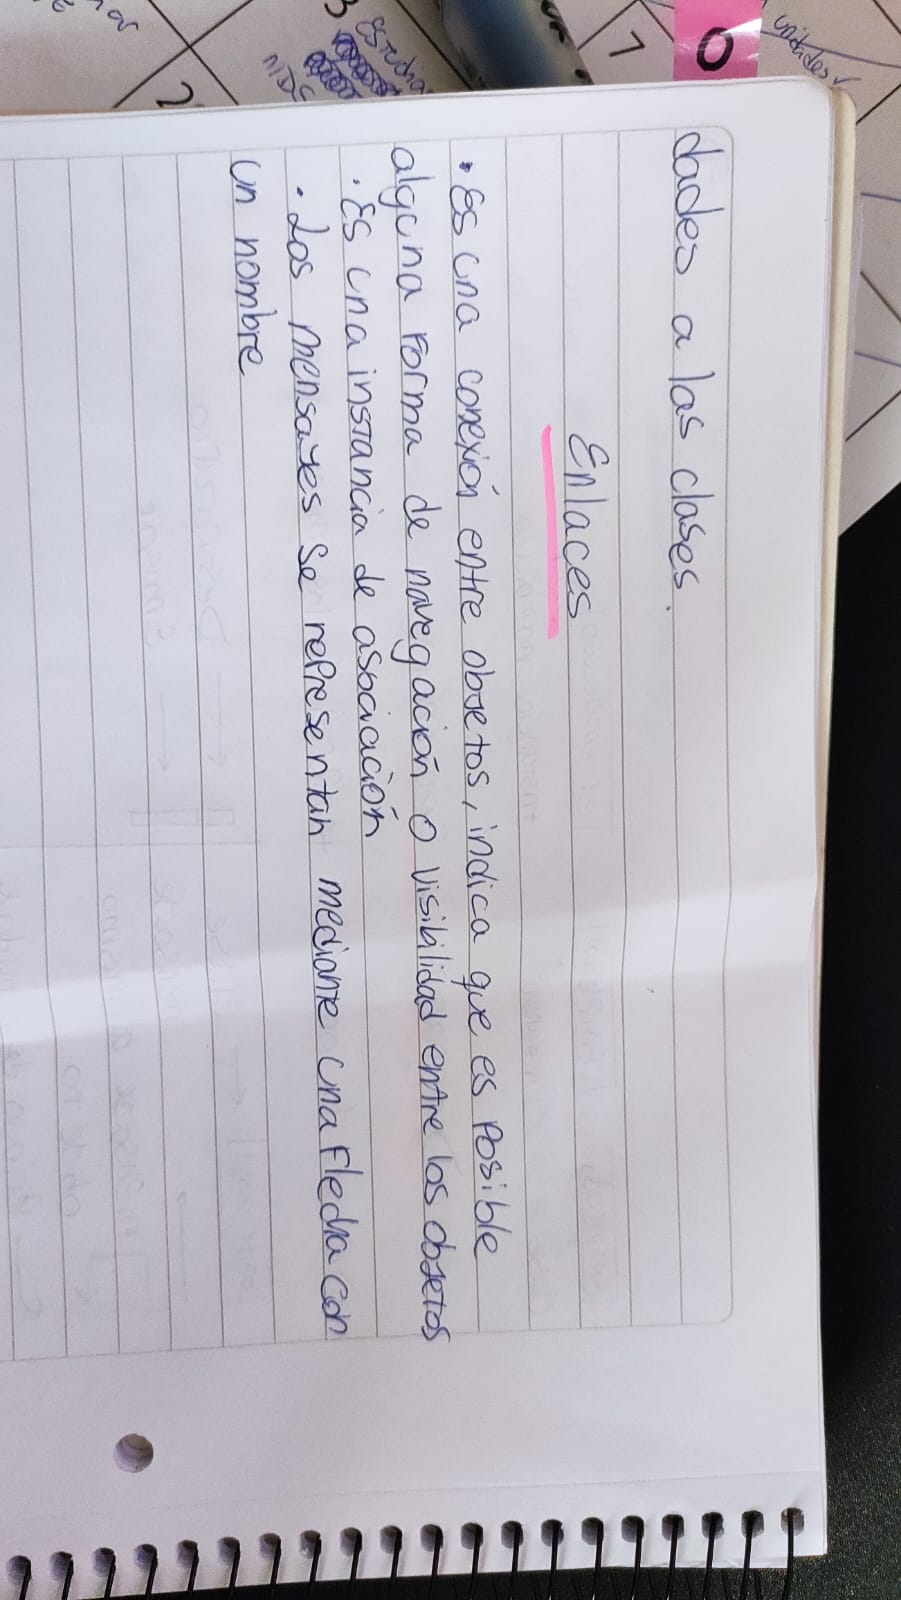 dades a las clases.
Enlaces
• Es una conexión entre objetos, indica que es posible
alguna forma de navegación o visibilidad entre los objetos
• Es una instancia de asociación
• Los mensajes se representan mediante una flecha con
un nombre
unidades
0
7
Estudiar
3
2